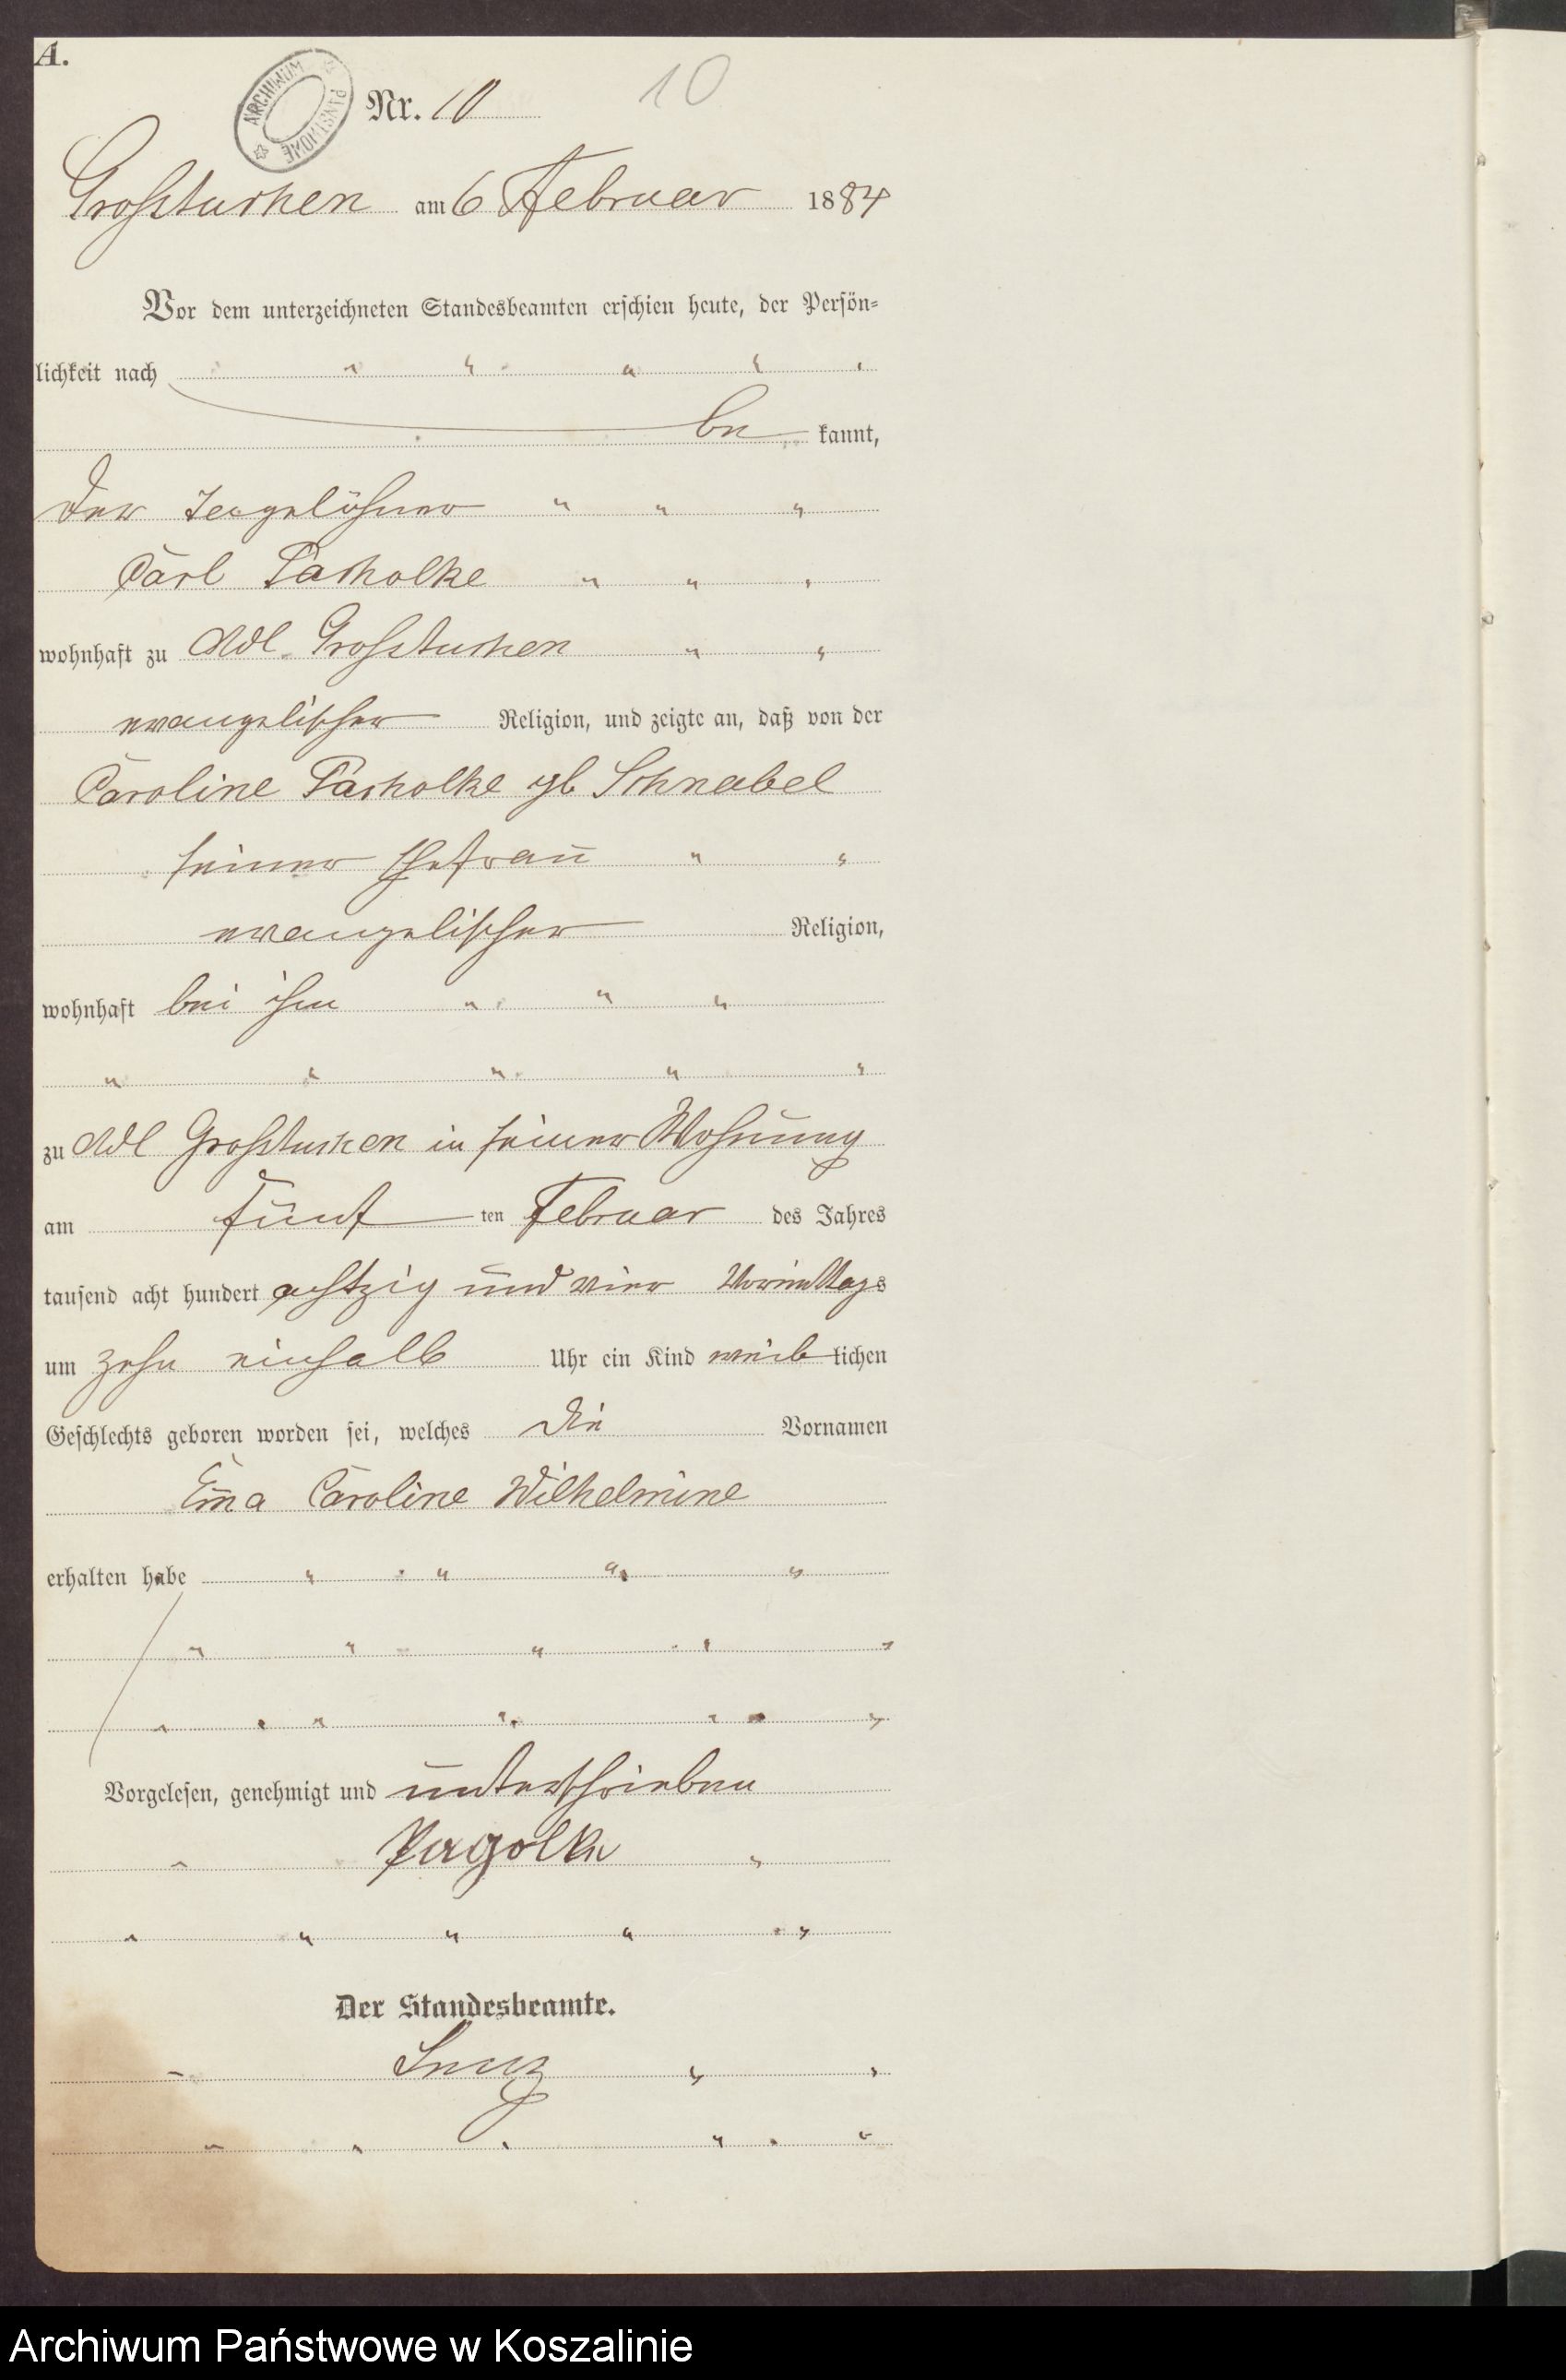 A.
ARCHIWUM PAŃSTWOWE
Nr. 10
10
Großtuchen am 6 Februar 1884
Vor dem unterzeichneten Standesbeamten erschien heute, der Persön=
lichkeit nach
be kannt,
der Tagelöhner
Carl Pacholke
wohnhaft zu Adl. Großtuchen
evangelischer Religion, und zeigte an, daß von der
Caroline Pacholke gb Schnabel
seiner Ehefrau
evangelischer Religion,
wohnhaft bei ihm
zu Adl Großtuchen in seiner Wohnung
am fünf ten Februar des Jahres
tausend acht hundert achtzig und vier Vormittags
um zehn einhalb Uhr ein Kind weib lichen
Geschlechts geboren worden sei, welches die Vornamen
Em̄a Caroline Wilhelmine
erhalten habe
Vorgelesen, genehmigt und unterschrieben
Pagolke
Der Standesbeamte.
Archiwum Państwowe w Koszalinie